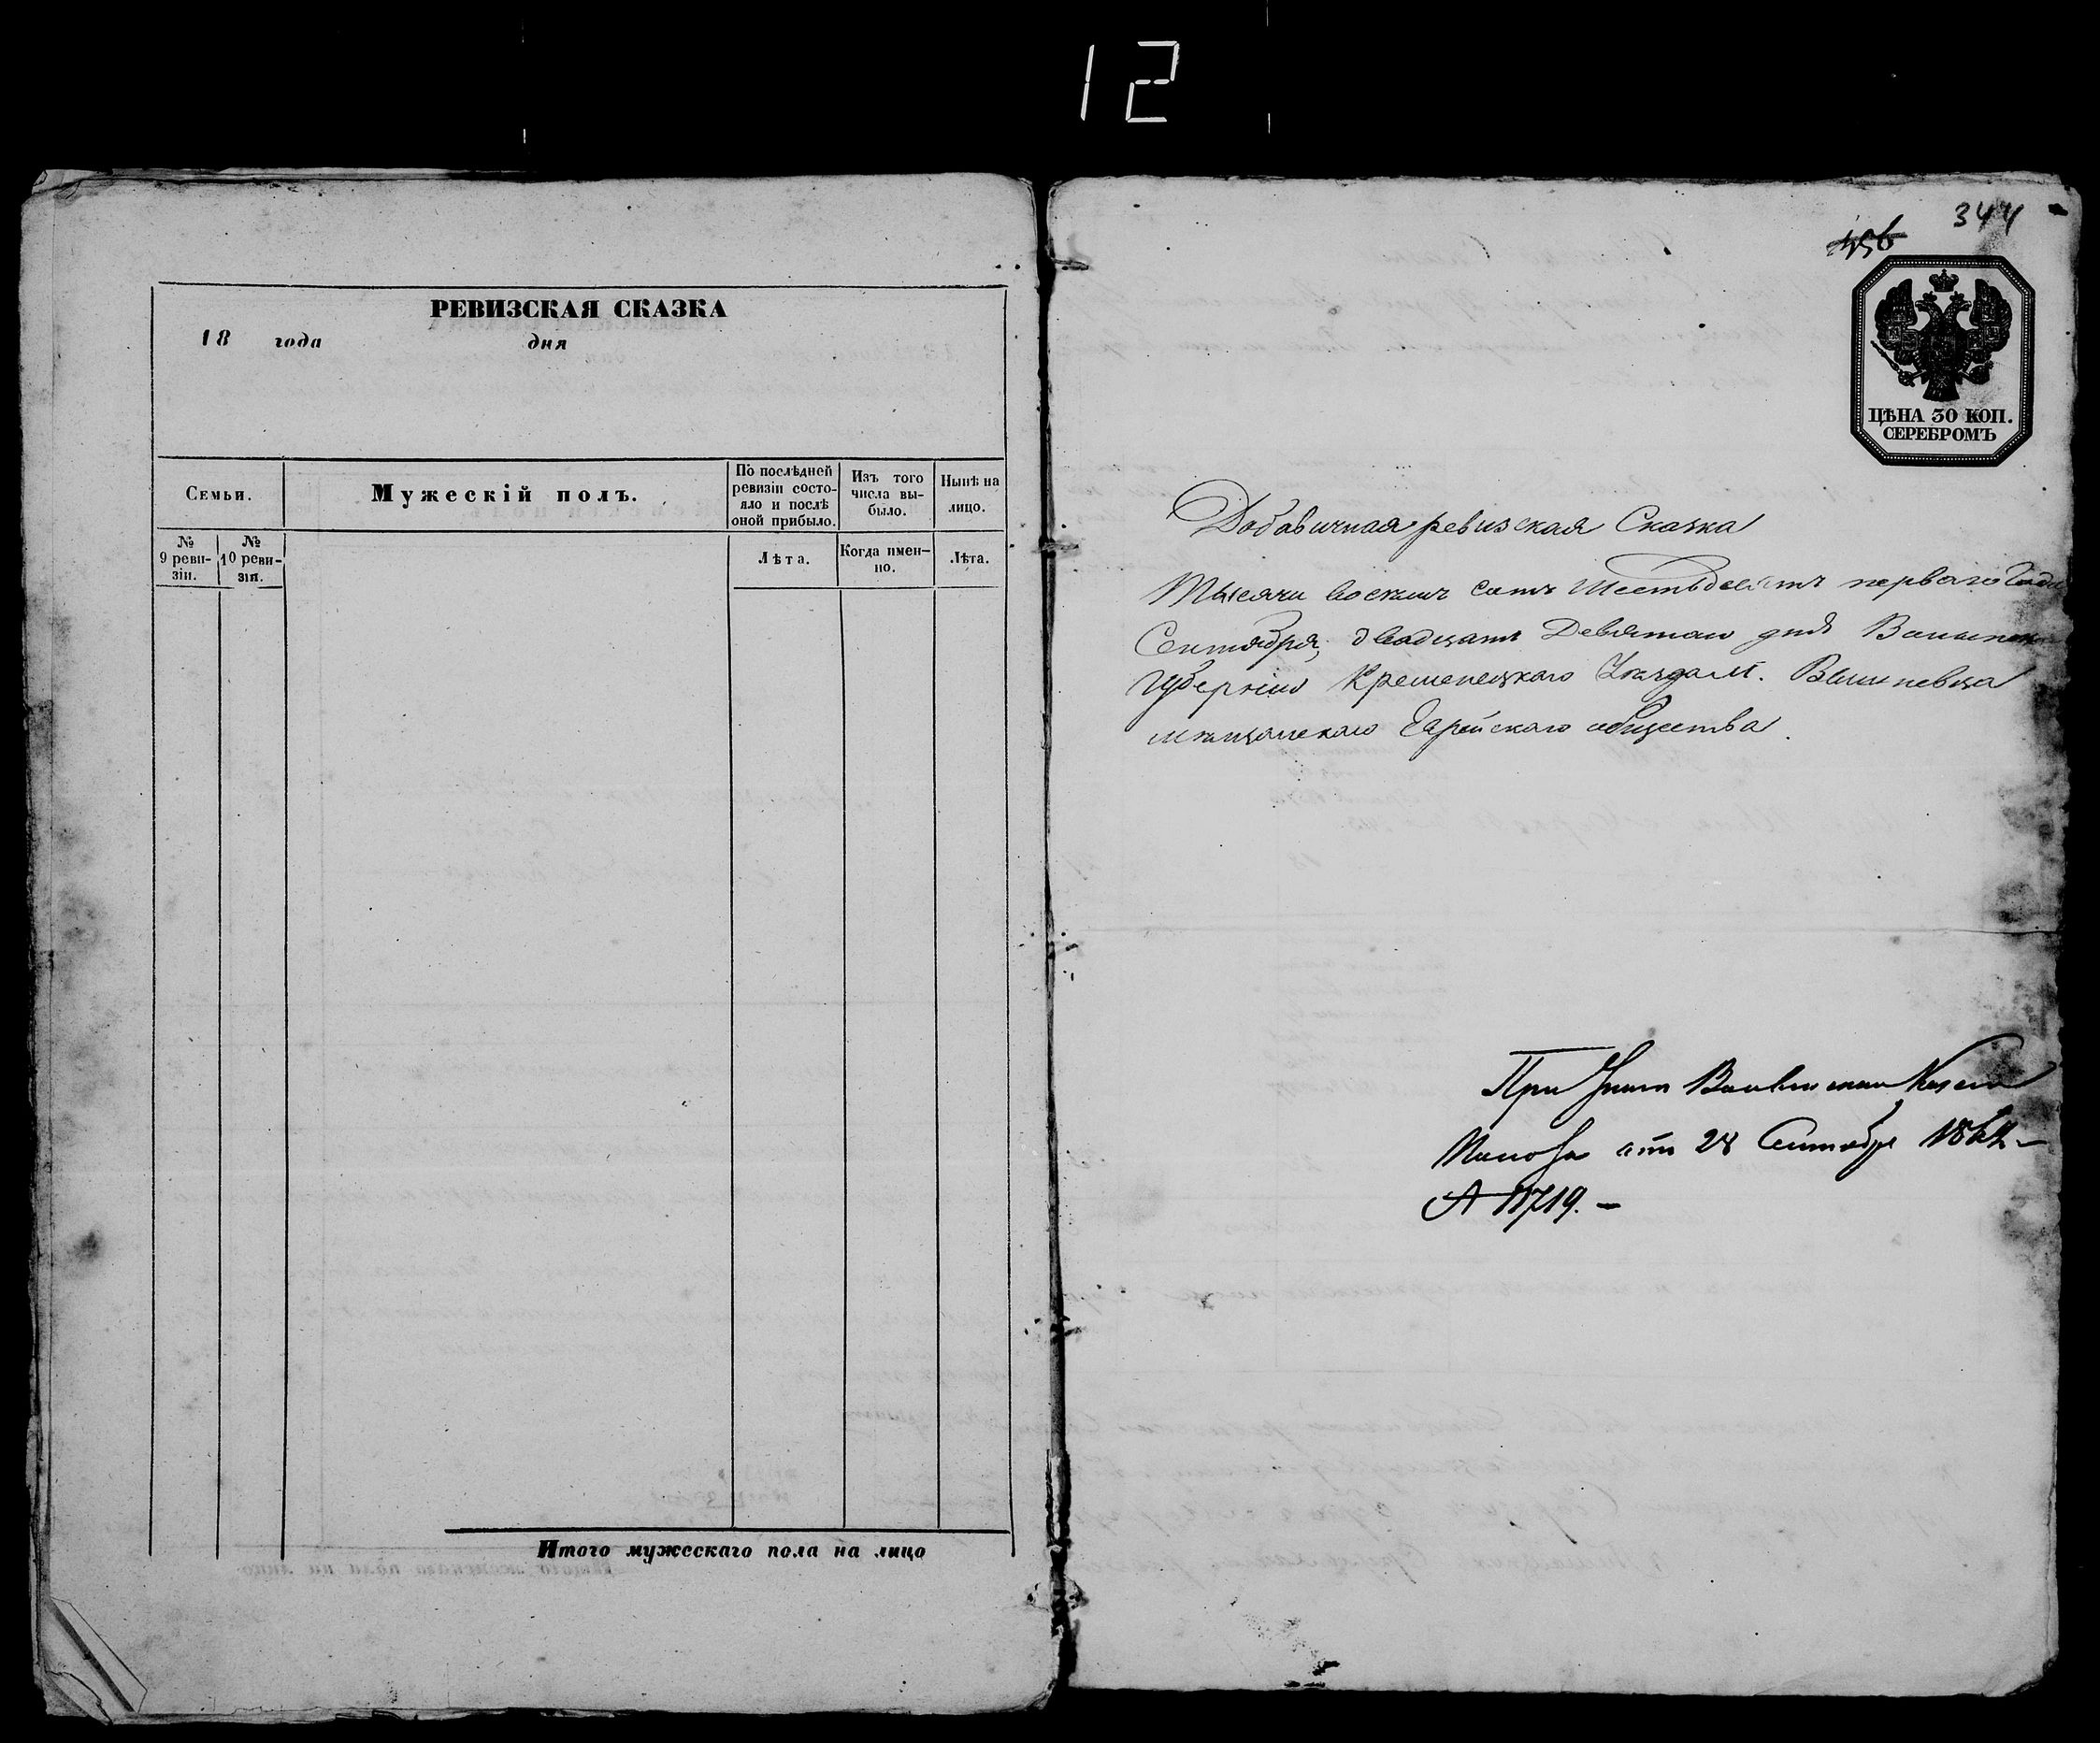 12
РЕВИЗСКАЯ СКАЗКА
18 года дня
Семьи.
Мужескій полъ.
По послѣдней ревизіи состо-яло и послѣ оной прибыло.
Изъ того числа вы-было.
Нынѣ на лицо.
№ 9 реви-зіи.
№ 10 реви-зіи.
Лѣта.
Когда имен-но.
Лѣта.
Итого мужескаго пола на лицо
344
456
ЦѢНА 30 КОП.
СЕРЕБРОМЪ
Добавичная ревизская Сказка
Тысячи восемъ сотъ Шестьдесятъ перваго Года
Сентября, двадцать Девятаго дня
Губерніи Кременецкаго Уезда М. Вишневца
мѣщанскаго Еврейскаго общества.
При
отъ 28 Сентября
№ 11719. —